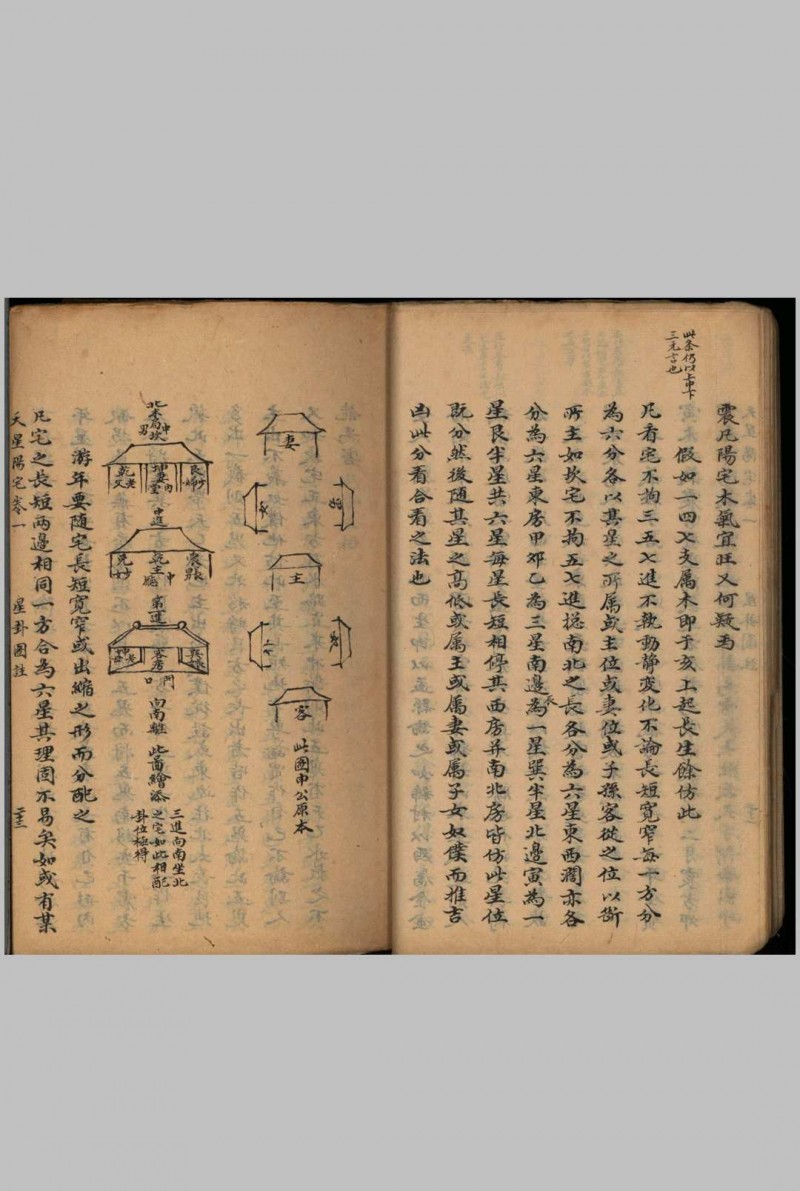 此条仍以上中下
三元言也
震凡陽宅木氣宜旺又何疑焉
假如一四七支属木即于亥上起長生餘仿此
凡看宅不拘三五七進不執動静変化不論長短寛窄每一方分
為六分各以其星之所属或主位或妻位或子孫客従之位以断
所主如坎宅不拘五七進搃南北之長各分為六星東西濶亦各
分為六星東房甲夘乙為三星南邊為一星巽半星北邊寅為一
星艮半星共六星每星長短相停其西房并南北房皆仿此星位
既分然後随其星之高低或属王或属妻或属子女奴僕而推吉
凶此分看合看之法也
妻
主
客
此圖申公原本
北
中男
艮少
坤妻
乾父
中進
震
乾主
兑少
前進
客房
門口
向南離
此啚繪添
三進向南坐北
之宅如此相配
卦位極得
游年要随宅長短寛窄或出縮之形而分配之
凡宅之長短両邊相同一方合為六星其理固不易矣如或有某
天星陽宅卷一
星卦圖註